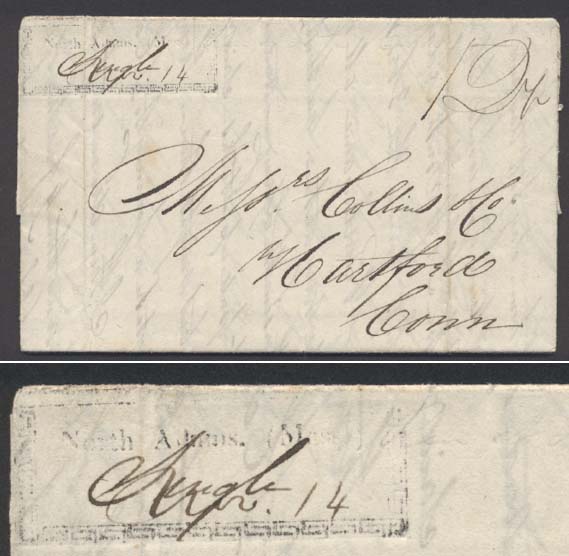 North Adams. (Mass
Single
14
Messrs Collins & Co.
Hartford
Conn
North Adams. (Mass
Single
14